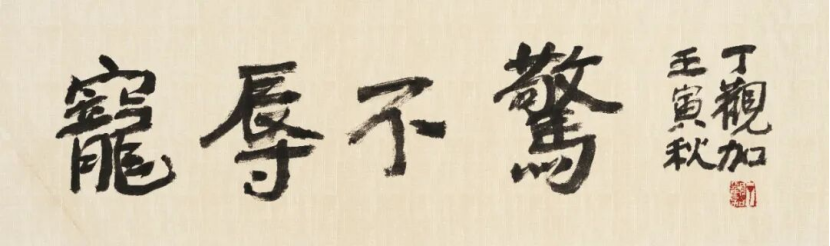 寵辱不驚
壬寅秋
丁觀加